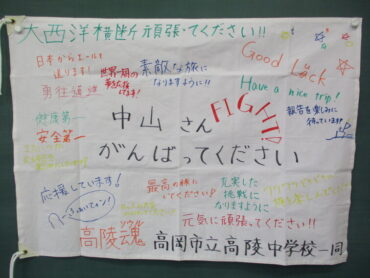 大西洋横断頑張ってください!!
日本からエールを
送ります!
世界一周の
素敵な旅に
なりますように!!
Good Luck
勇往邁進
Have a nice trip!
報告を楽しみに
待っています!
健康第一
安全第一
中山さん
FIGHT!
がんばってください
応援しています!
最高の旅に
してください!
充実した
挑戦に
なりますように
元気に頑張ってください!!
高陵魂
ソウル
高岡市立高陵中学校一同